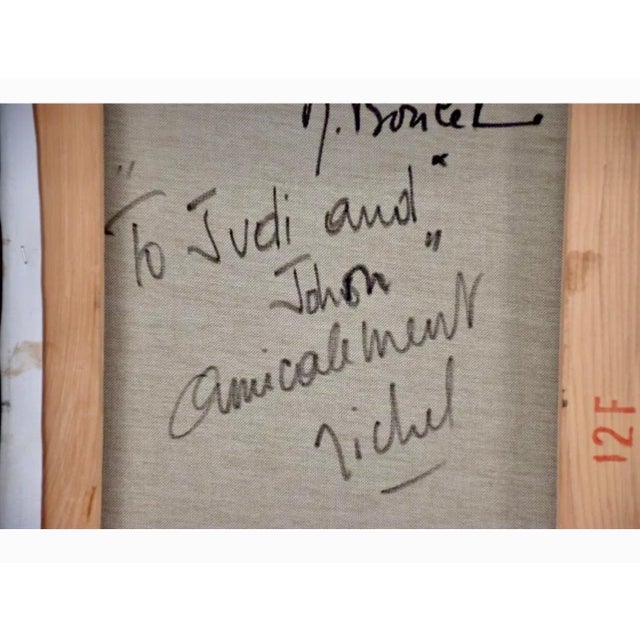 M. Boulet
" To Judi and "
Johon "
amicalement
Michel
12F